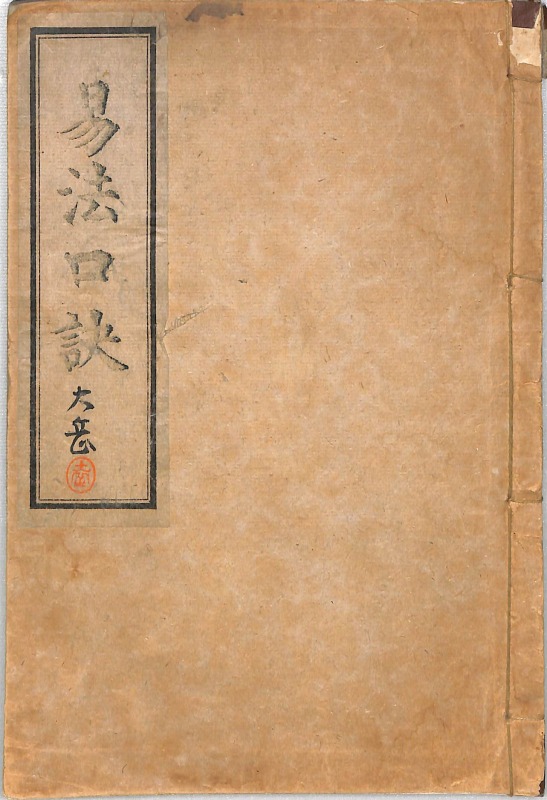 易法口訣
大岳